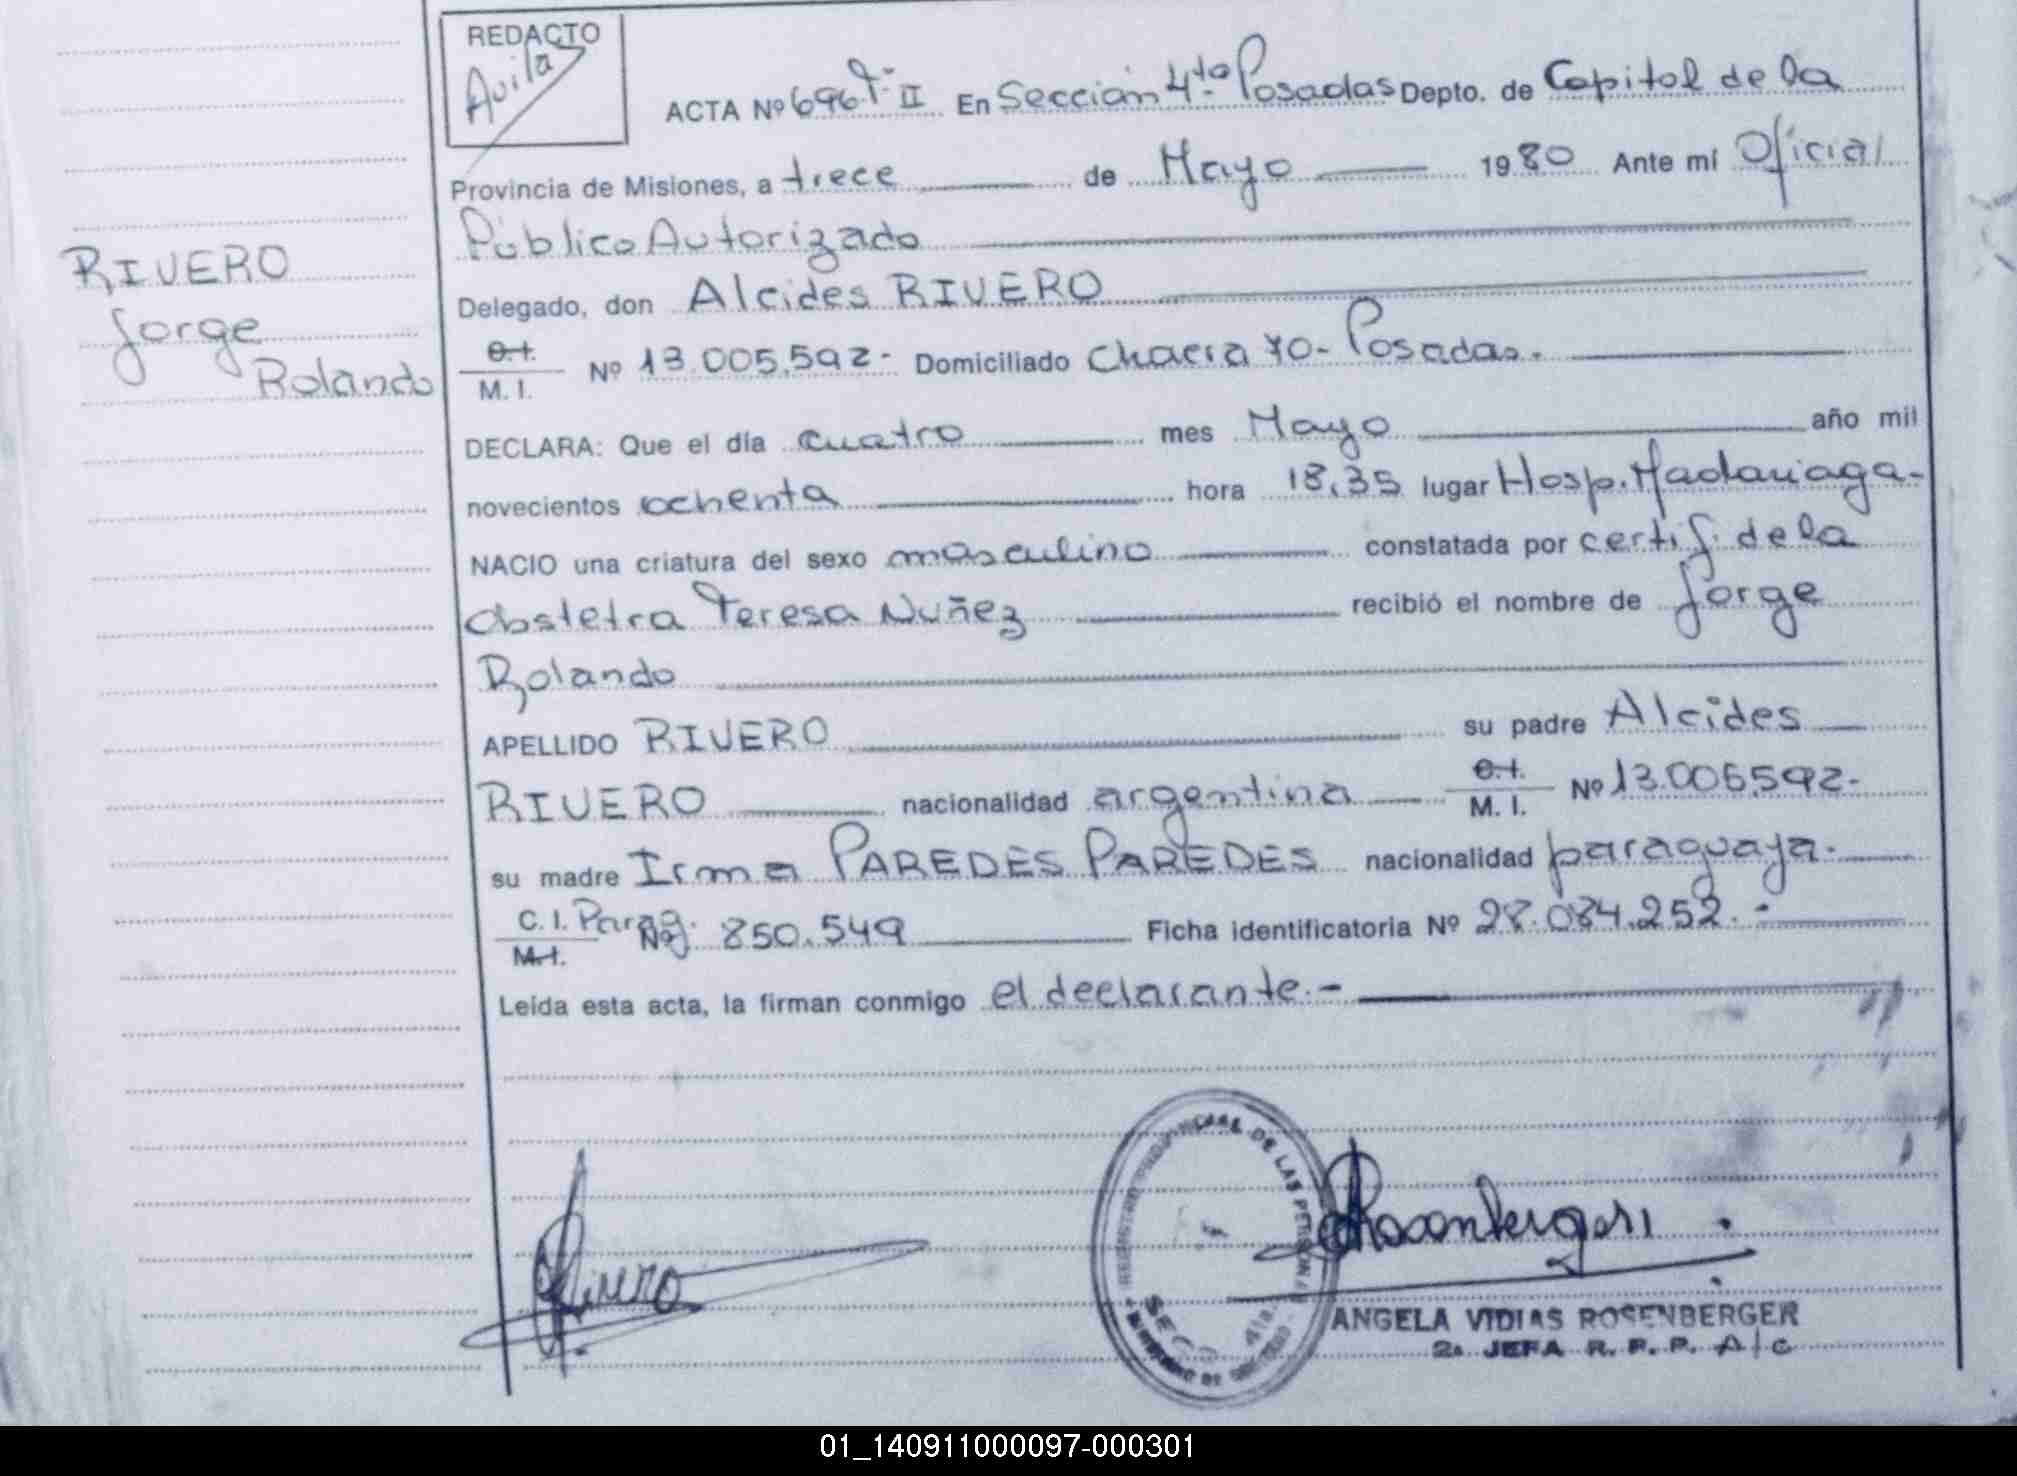 REDACTO
Avila
ACTA Nº 696 T- II En Sección 4ta- Posadas Depto. de Capital de la
Provincia de Misiones, a trece de Mayo 1980 Ante mí Oficial
Público Autorizado
RIVERO
Jorge
Rolando
Delegado, don Alcides RIVERO
O.I.
M. I. Nº 13.005.592- Domiciliado Chacra 70- Posadas.
DECLARA: Que el día cuatro mes Mayo año mil
novecientos ochenta hora 18,35 lugar Hosp. Madariaga-
NACIO una criatura del sexo masculino constatada por certif. de la
Obstetra Teresa Nuñez recibió el nombre de Jorge
Rolando
APELLIDO RIVERO su padre Alcides
RIVERO nacionalidad argentina O.I.
M. I. Nº 13.005.592-
su madre Irma PAREDES PAREDES nacionalidad paraguaya.
C. I. Parag.
M. I. Nº 850.549 Ficha identificatoria Nº 28.084.252.-
Leída esta acta, la firman conmigo el declarante.-
Rivero
REGISTRO PROVINCIAL DE LAS PERSONAS
SECC 4ta.
Rosenberger
ANGELA VIDIAS ROSENBERGER
2a JEFA R. P. P. A/C
01_140911000097-000301